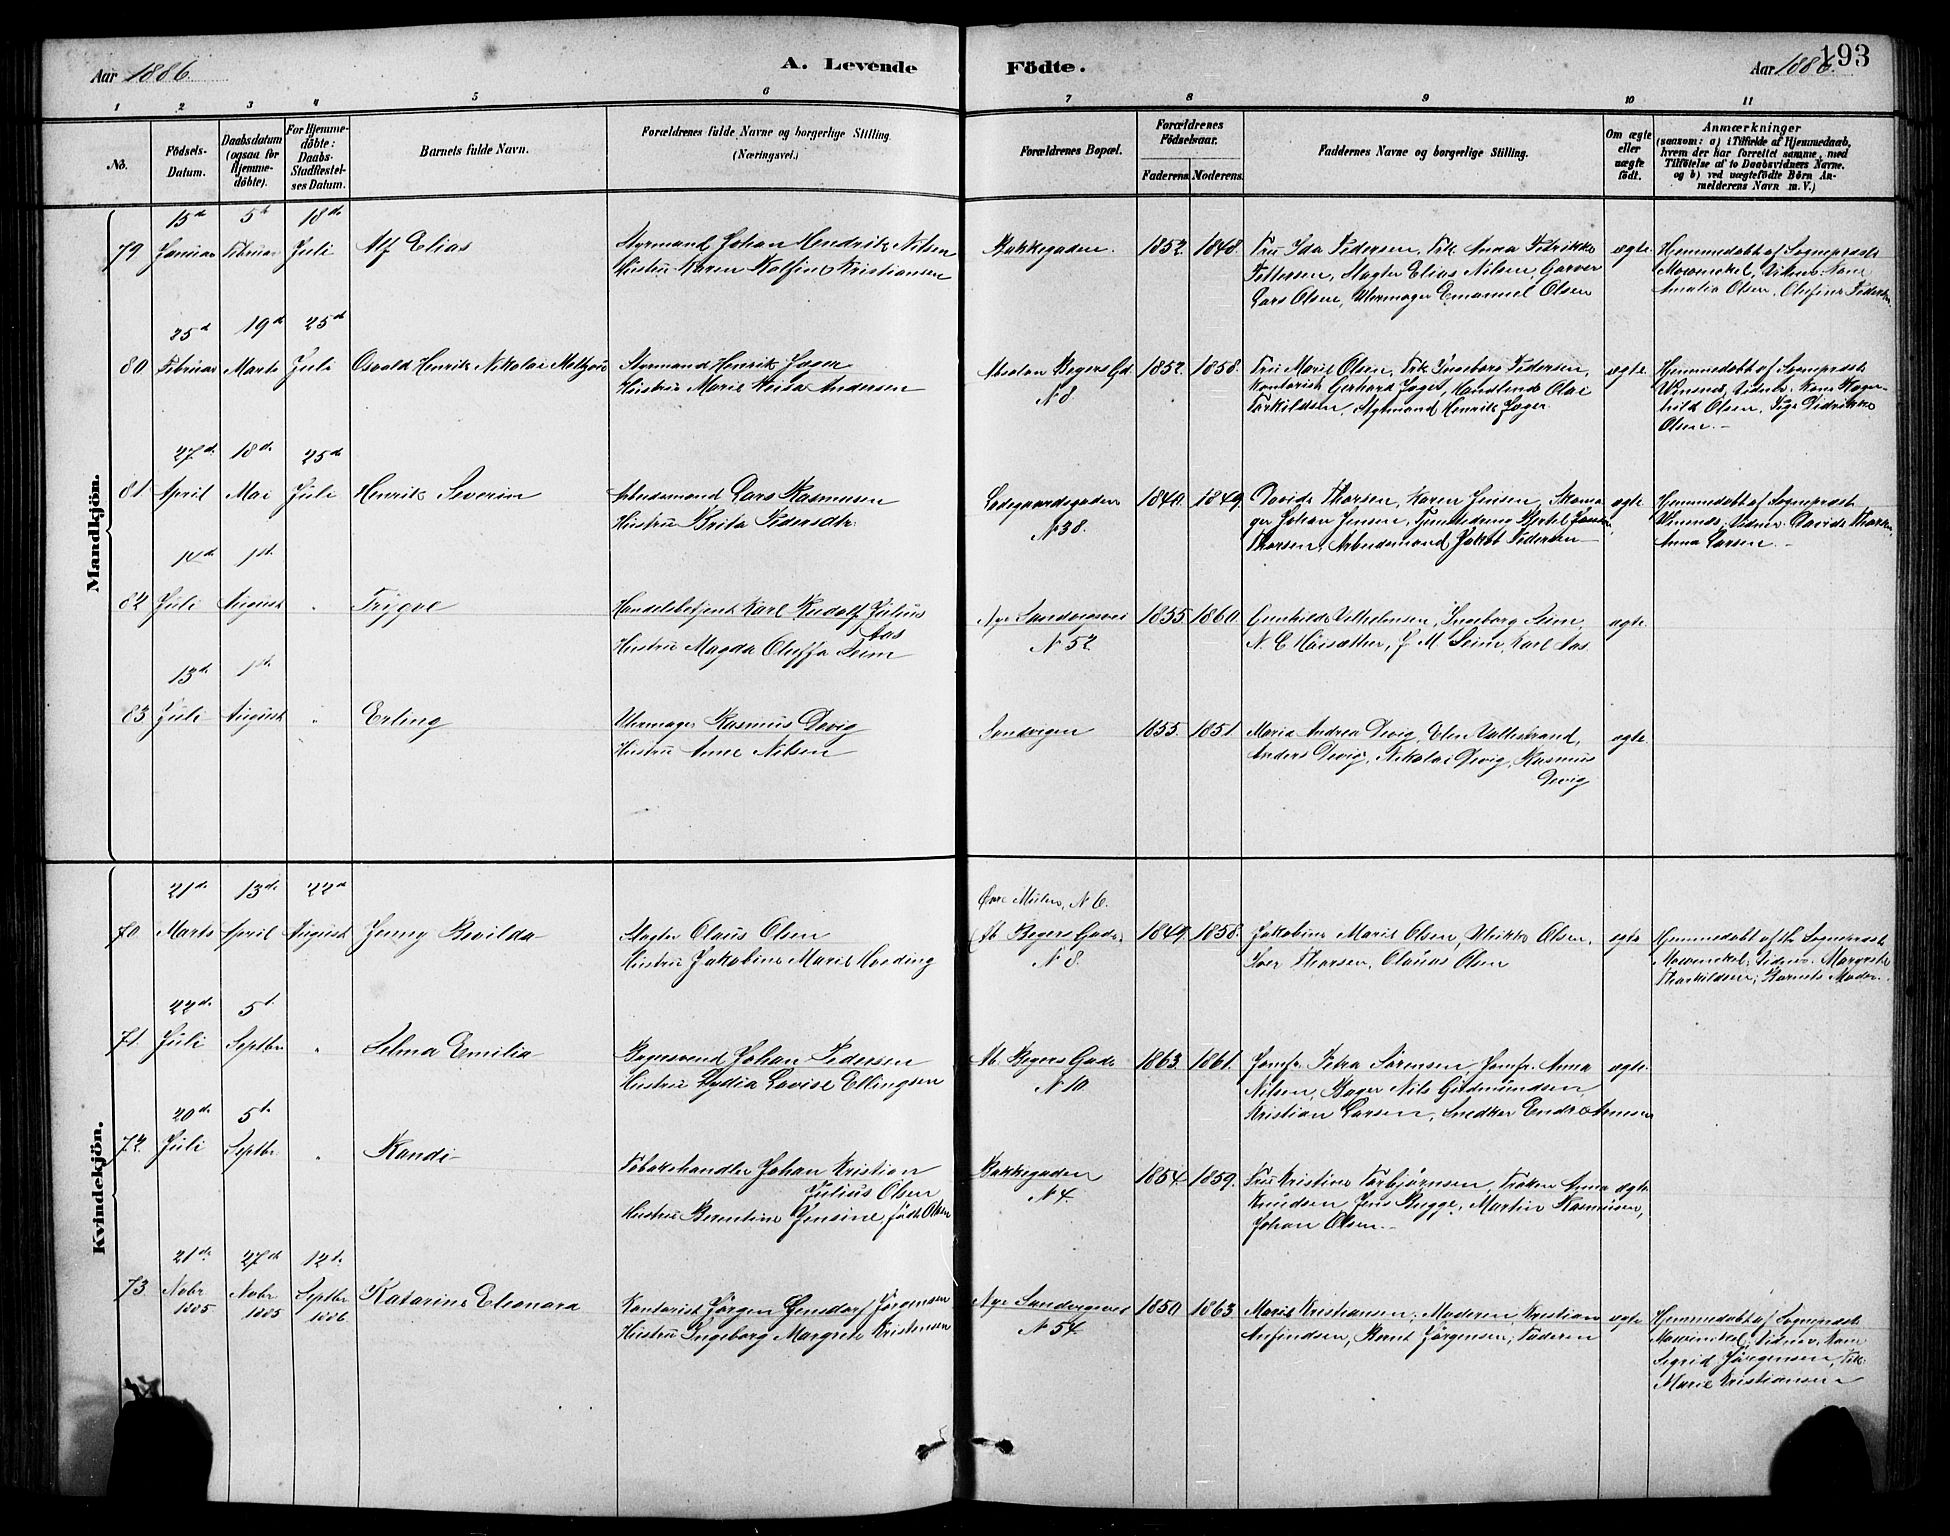 Aar 1886.
A. Levende
Födte.
Aar 1886.
193
1 2 3 4 5 6 7 8 9 10 11
No.
Födsels-
Datum.
Daabsdatum
(ogsaa for
Hjemme-
döbte).
For Hjemme-
döbte:
Daabs-
Stadfæstel-
ses Datum.
Barnets fulde Navn.
Forældrenes fulde Navne og borgerlige Stilling.
(Næringsvei.)
Forældrenes Bopæl.
Forældrenes
Födselsaar.
Faderens. Moderens.
Faddernes Navne og borgerlige Stilling.
Om ægte
eller
uægte
födt.
Anmærkninger
(saasom: a) i Tilfælde af Hjemmedaab,
hvem der har forrettet samme, med
Tilföielse af to Daabsvidners Navne.
og b) ved uægtefödte Börn An-
melderens Navn m. V.)
Mandkjön.
15de 5te 18de
79 Januar Februar Juli Alf Elias
Styrmand Johan Hendrik Nilsen
Hustru Karen Kristiansen
Bakkegaden. 1852. 1848.
Fru Ida Pedersen, Frk Anna Fredrikke
Pettersen, Slagter Elias Nilsen, Garver
Lars Olsen, Uhrmager Emanuel Olsen
ægte.
Hjemmedøbt af Sogneprest
Mowinckel, Vidner: Kone
Amalia Olsen, Olufine Pedersen
25de 19de 25de
80 Februar Marts Juli Osvald Henrik Nikolai
Styrmand Henrik Jæger
Hustru Marie Andersen
Absalon Begers Gd. 1852. 1858.
N 8
Fru Marie Olsen, Frk Ingeborg Pedersen,
Kontorist Gerhard Jæger, Handlende Olai
Torkildsen, Styrmand Henrik Jæger.
ægte.
Hjemmedøbt af Sogneprest
Vidner: Kone Ragn-
hild Olsen, Pige Didrikke
Olsen.
27de 18de 25de
81. April Mai Juli Henrik Severin
Arbeidsmand Lars Rasmusen
Hustru Brita Pedersdtr.
Ladegaardsgaden 1840. 1849.
N 38.
Davide Thorsen, Karen Jensen, Skoma-
ger Johan Jensen, Tømmedreng Bertel
Thorsen, Arbeidsmand Jakob Pedersen
ægte.
Hjemmedøbt af Sogneprest
Vidner: Davide Thorsen,
Anna Larsen.
14de 1ste
82 Juli August " Trygve
Handelsbetjent Karl Rudolf Julius
Aas
Hustru Magda Oluffa Seim
Nye Sandvigsvei 1855. 1860.
N 52
Vilhelmsen, Ingeborg Seim,
N. C. Høisæther, J M Seim, Karl Aas
ægte.
13de 1ste
83 Juli August " Erling
Uhrmager Rasmus Devig
Hustru Anne Nilsen
Sandvigen 1855. 1851.
Maria Andrea Devig, Olen Vallestrand,
Anders Devig, Nikolai Devig, Rasmus
Devig
ægte.
Kvindekjön.
21de 13de 22de
70 Marts April August Jenny Bvilda
Slagter Claus Olsen
Hustru Jakobine Marie Hveding
Øvre Mulen, N 6.
Ab. Begers Gade, 1849. 1858.
N 8.
Jakobine Marie Olsen, Ulrikke Olsen,
Iver Thorsen, Claus Olsen
ægte
Hjemmedøbt af Sogneprest
Mowinckel; Vidner: Margrethe
Thorkildsen; Barnets Moder.
22de 5te
71. Juli Septbr. " Selma Emilia
Bagersvend Johan Pedersen
Hustru Lydia Lovise Ellingsen
Ab. Begers Gade 1863. 1861.
N 10
Jomfr. Petra Sørensen, Jomfr. Anna
Nilsen, Bager Nils Gudmundsen,
Kristian Larsen, Snedker Endre Arnesen
ægte.
20de 5te
72. Juli Septbr. " Randi
Tobakshandler Johan Kristian
Julius Olsen
Hustru Berentine Jensine født Olsen
Bakkegaden 1854. 1859.
N 4.
Fru Kristine Torbjørnsen, Frøken Anna
Knudsen, Jens Bugge, Martin Rasmusen,
Johan Olsen.
ægte
21de 27de 12te
73 Nobr 1885 Nobr 1885 Septbr 1886. Katarine Eleonara
Kontorist Jørgen Gensdorf Jørgensen
Hustru Ingeborg Margrete Kristensen
Nye Sandvigsvei 1850. 1863.
N 54
Marie Kristiansen, Moderen, Kristian
Anfindsen, Bernt Jørgensen, Faderen
ægte
Hjemmedøbt af Sogneprest
Mowinckel; Vidner: Kone
Sigrid Jørgensen, Frk.
Marie Kristiansen